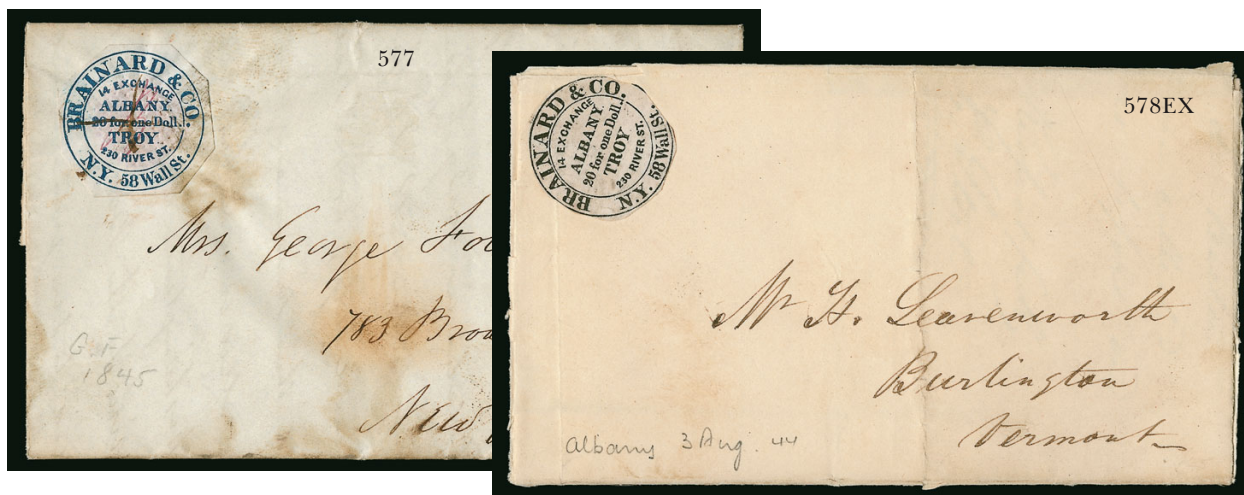 577
BRAINARD & CO.
14 EXCHANGE
ALBANY.
20 for one Doll.
TROY
230 RIVER ST.
N.Y. 58 Wall St.
Mrs. George
783
New
G. F
1845
578EX
BRAINARD & CO.
14 EXCHANGE
ALBANY.
20 for one Doll.
TROY
230 RIVER ST.
N.Y. 58 Wall St.
Mr H. Leavenworth
Burlington
Vermont
Albany 3 Aug. 44